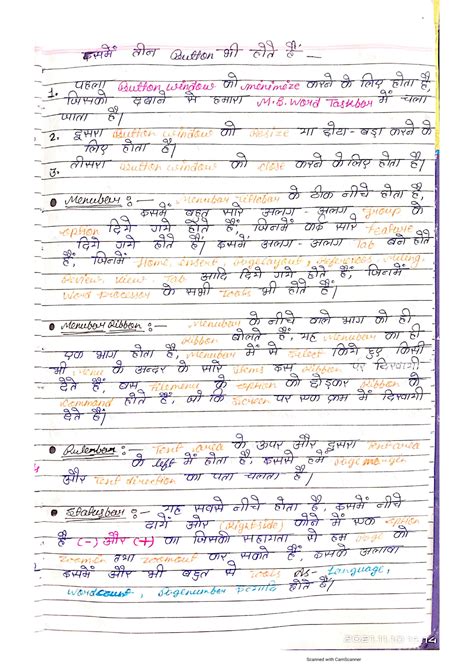 इसमें तीन Button भी होते हैं
1. पहला Button window को menimize करने के लिए होता है,
जिसको दबाने से हमारा M.S.Word Taskbar में चला
जाता है।
2. दूसरा Button window को Resize या छोटा-बड़ा करने के
लिए होता है।
3. तीसरा Button window को close करने के लिए होता है।
● Menubar :- Menubar Titlebar के ठीक नीचे होता है,
इसमें बहुत सारे अलग-अलग group के
option दिये गये होते हैं, जिनमें कई सारे Feature
दिये गये होते हैं। इसमें अलग-अलग Tab बने होते
हैं, जिनमें Home, Insert, Pagelayout, References, Mailing,
Review, View Tab आदि दिये गये होते हैं, जिनमें
Word Processor के सभी Tools भी होते हैं।
● Menubar Ribbon :- Menubar के नीचे वाले भाग को ही
Ribbon बोलते हैं, यह Menubar का ही
एक भाग होता है, Menubar में से Select किये हुए किसी
भी Menu के अन्दर के सारे Items इस Ribbon पर दिखायी
देते हैं, बस Filemenu के option को छोड़कर Ribbon को
Command होते हैं, जो कि Screen पर एक क्रम में दिखायी
देते हैं।
● Rulerbar :- Text area के ऊपर और दूसरा Text area
के left में होता है, इससे हमें Page margin
और Text direction का पता चलता है।
● Statusbar :- यह सबसे नीचे होता है, इसमें नीचे
दायें ओर (Right side) कोने में एक option
है (-) और (+) का जिसकी सहायता से हम Page को
zoomin तथा zoomout कर सकते हैं, इसके अलावा
इसमें और भी बहुत से Tools जैसे- Language,
Wordcount, Pagenumber इत्यादि होते हैं।
2021.11.10 14:14
Scanned with CamScanner